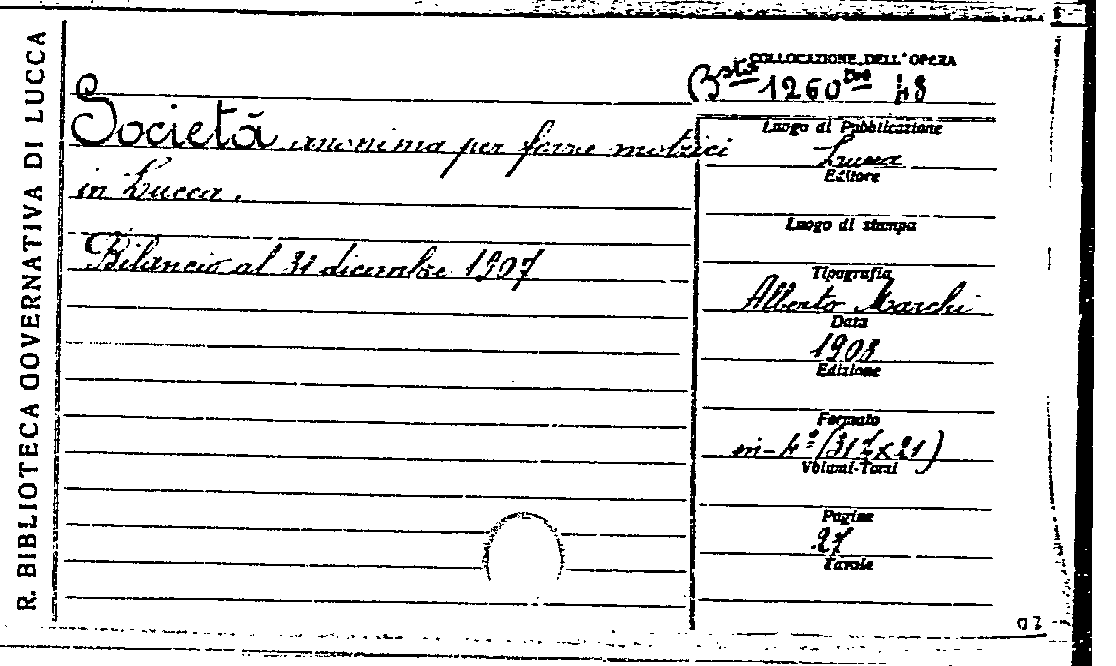 R. BIBLIOTECA GOVERNATIVA DI LUCCA
COLLOCAZIONE DELL'OPERA
Bsta 1260 48
Società anonima per forze motrici
in Lucca.
Bilancio al 31 dicembre 1907
Luogo di Pubblicazione
Lucca
Editore
Luogo di stampa
Tipografia
Alberto Marchi
Data
1908
Edizione
Formato
in-4º (31 x 21)
Volumi-Tomi
Pagine
27
Tavole